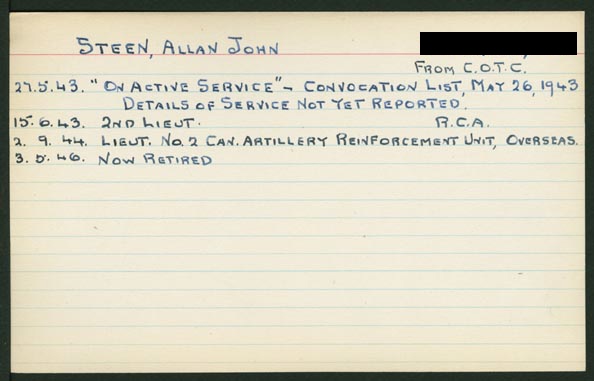 STEEN, ALLAN JOHN
FROM C.O.T.C.
27.5.43. "ON ACTIVE SERVICE" – CONVOCATION LIST, MAY 26, 1943
DETAILS OF SERVICE NOT YET REPORTED.
15.6.43. 2ND LIEUT. R.C.A.
2. 9. 44. LIEUT. NO. 2 CAN. ARTILLERY REINFORCEMENT UNIT, OVERSEAS.
3. 5. 46. NOW RETIRED